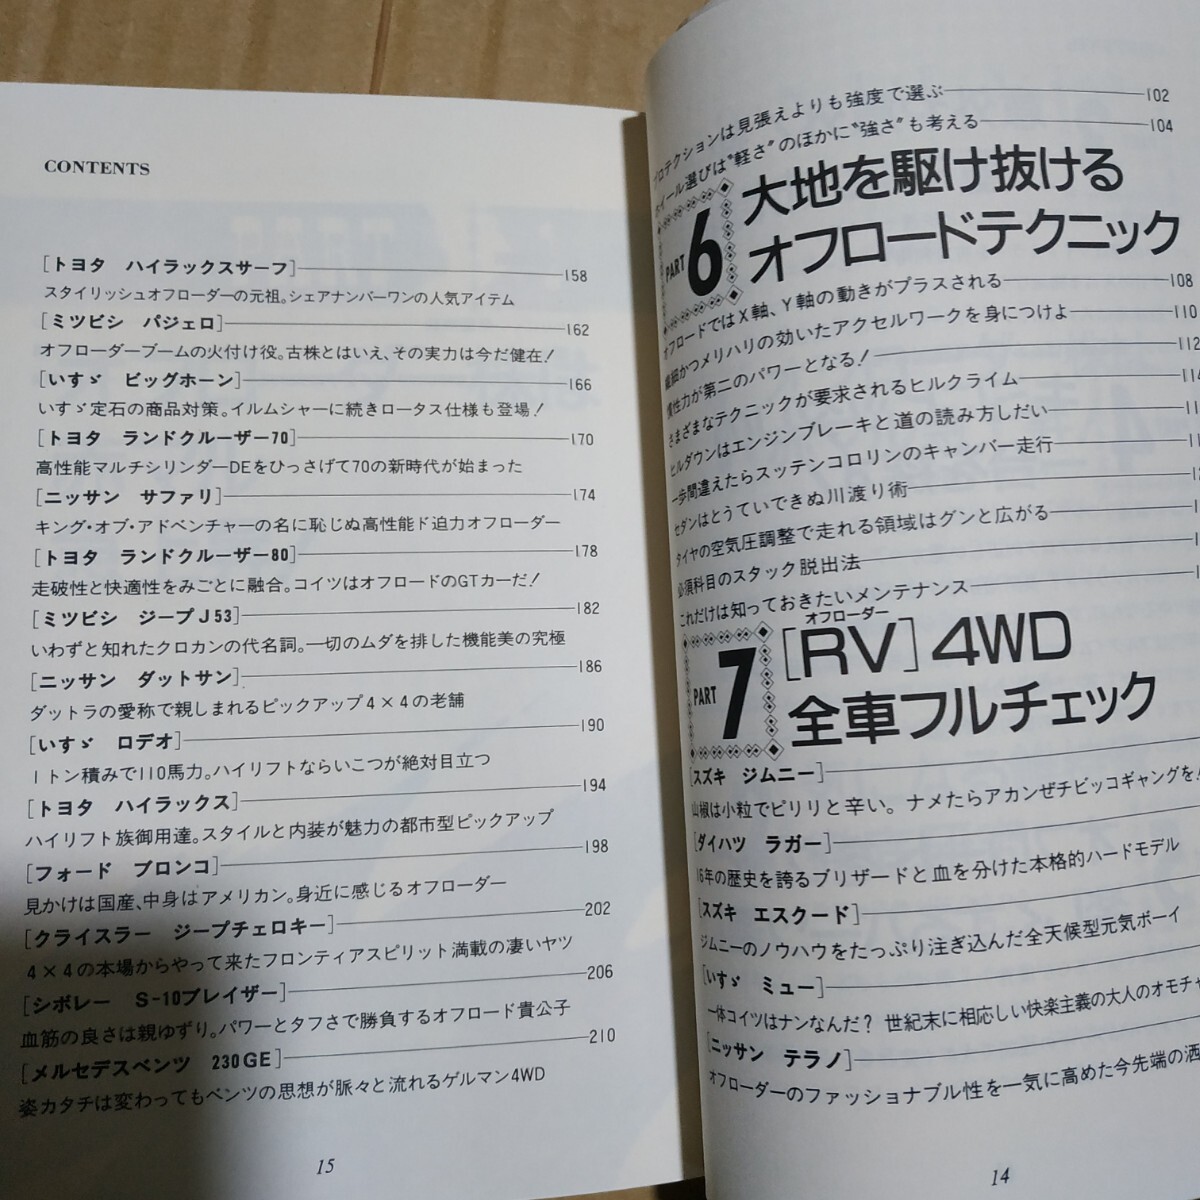 プロテクションは見張えよりも強度で選ぶ 102
ホイール選びは"軽さ"のほかに"強さ"も考える 104
PART 6
大地を駆け抜ける
オフロードテクニック
オフロードではX軸、Y軸の動きがプラスされる 108
繊細かつメリハリの効いたアクセルワークを身につけよ 110
慣性力が第二のパワーとなる! 112
さまざまなテクニックが要求されるヒルクライム
ヒルダウンはエンジンブレーキと道の読み方しだい
一歩間違えたらスッテンコロリンのキャンバー走行
セダンはとうていできぬ川渡り術
タイヤの空気圧調整で走れる領域はグンと広がる
必須科目のスタック脱出法
これだけは知っておきたいメンテナンス
PART 7
オフローダー
[RV]4WD
全車フルチェック
[スズキ ジムニー]
山椒は小粒でピリリと辛い。ナメたらアカンぜチビッコギャングを!
[ダイハツ ラガー]
16年の歴史を誇るブリザードと血を分けた本格的ハードモデル
[スズキ エスクード]
ジムニーのノウハウをたっぷり注ぎ込んだ全天候型元気ボーイ
[いすゞ ミュー]
一体コイツはナンなんだ? 世紀末に相応しい快楽主義の大人のオモチャ
[ニッサン テラノ]
オフローダーのファッショナブル性を一気に高めた今先端の洒
14
CONTENTS
[トヨタ ハイラックスサーフ] 158
スタイリッシュオフローダーの元祖。シェアナンバーワンの人気アイテム
[ミツビシ パジェロ] 162
オフローダーブームの火付け役。古株とはいえ、その実力は今だ健在!
[いすゞ ビッグホーン] 166
いすゞ定石の商品対策。イルムシャーに続きロータス仕様も登場!
[トヨタ ランドクルーザー70] 170
高性能マルチシリンダーDEをひっさげて70の新時代が始まった
[ニッサン サファリ] 174
キング・オブ・アドベンチャーの名に恥じぬ高性能ド迫力オフローダー
[トヨタ ランドクルーザー80] 178
走破性と快適性をみごとに融合。コイツはオフロードのGTカーだ!
[ミツビシ ジープJ53] 182
いわずと知れたクロカンの代名詞。一切のムダを排した機能美の究極
[ニッサン ダットサン] 186
ダットラの愛称で親しまれるピックアップ4×4の老舗
[いすゞ ロデオ] 190
1トン積みで110馬力。ハイリフトならいこつが絶対目立つ
[トヨタ ハイラックス] 194
ハイリフト族御用達。スタイルと内装が魅力の都市型ピックアップ
[フォード ブロンコ] 198
見かけは国産、中身はアメリカン。身近に感じるオフローダー
[クライスラー ジープチェロキー] 202
4×4の本場からやって来たフロンティアスピリット満載の凄いヤツ
[シボレー S-10ブレイザー] 206
血筋の良さは親ゆずり。パワーとタフさで勝負するオフロード貴公子
[メルセデスベンツ 230GE] 210
姿カタチは変わってもベンツの思想が脈々と流れるゲルマン4WD
15